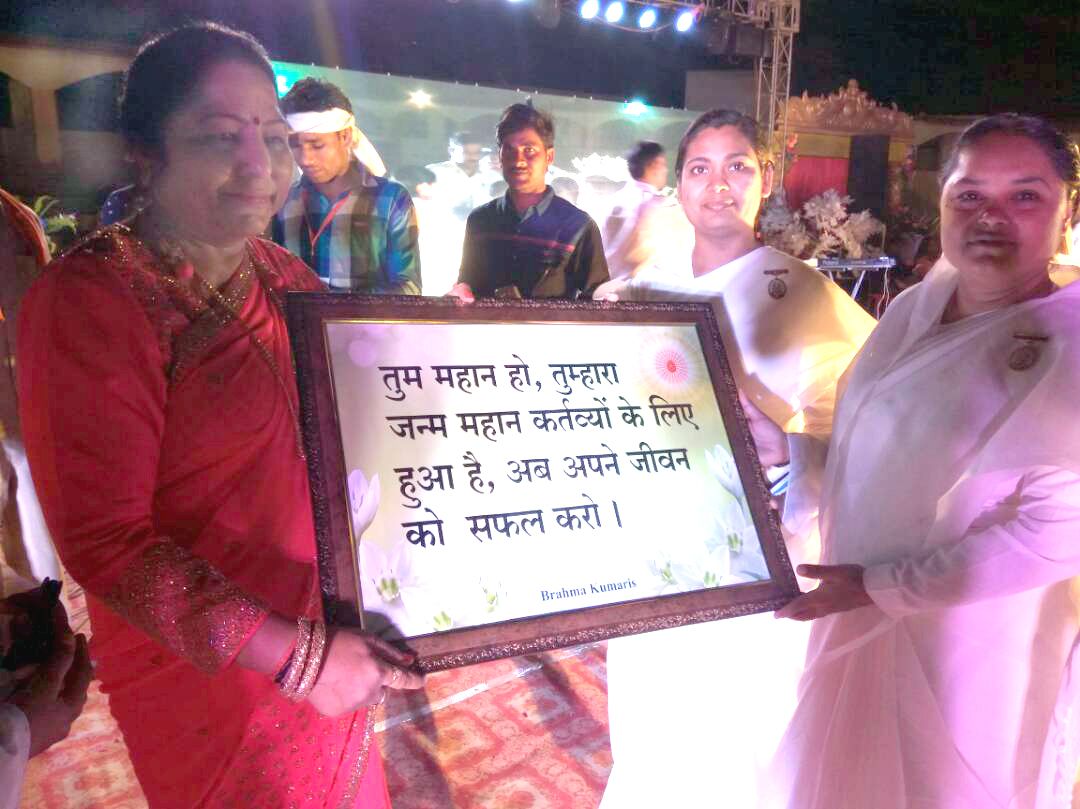 तुम महान हो, तुम्हारा
जन्म महान कर्तव्यों के लिए
हुआ है, अब अपने जीवन
को सफल करो।
Brahma Kumaris